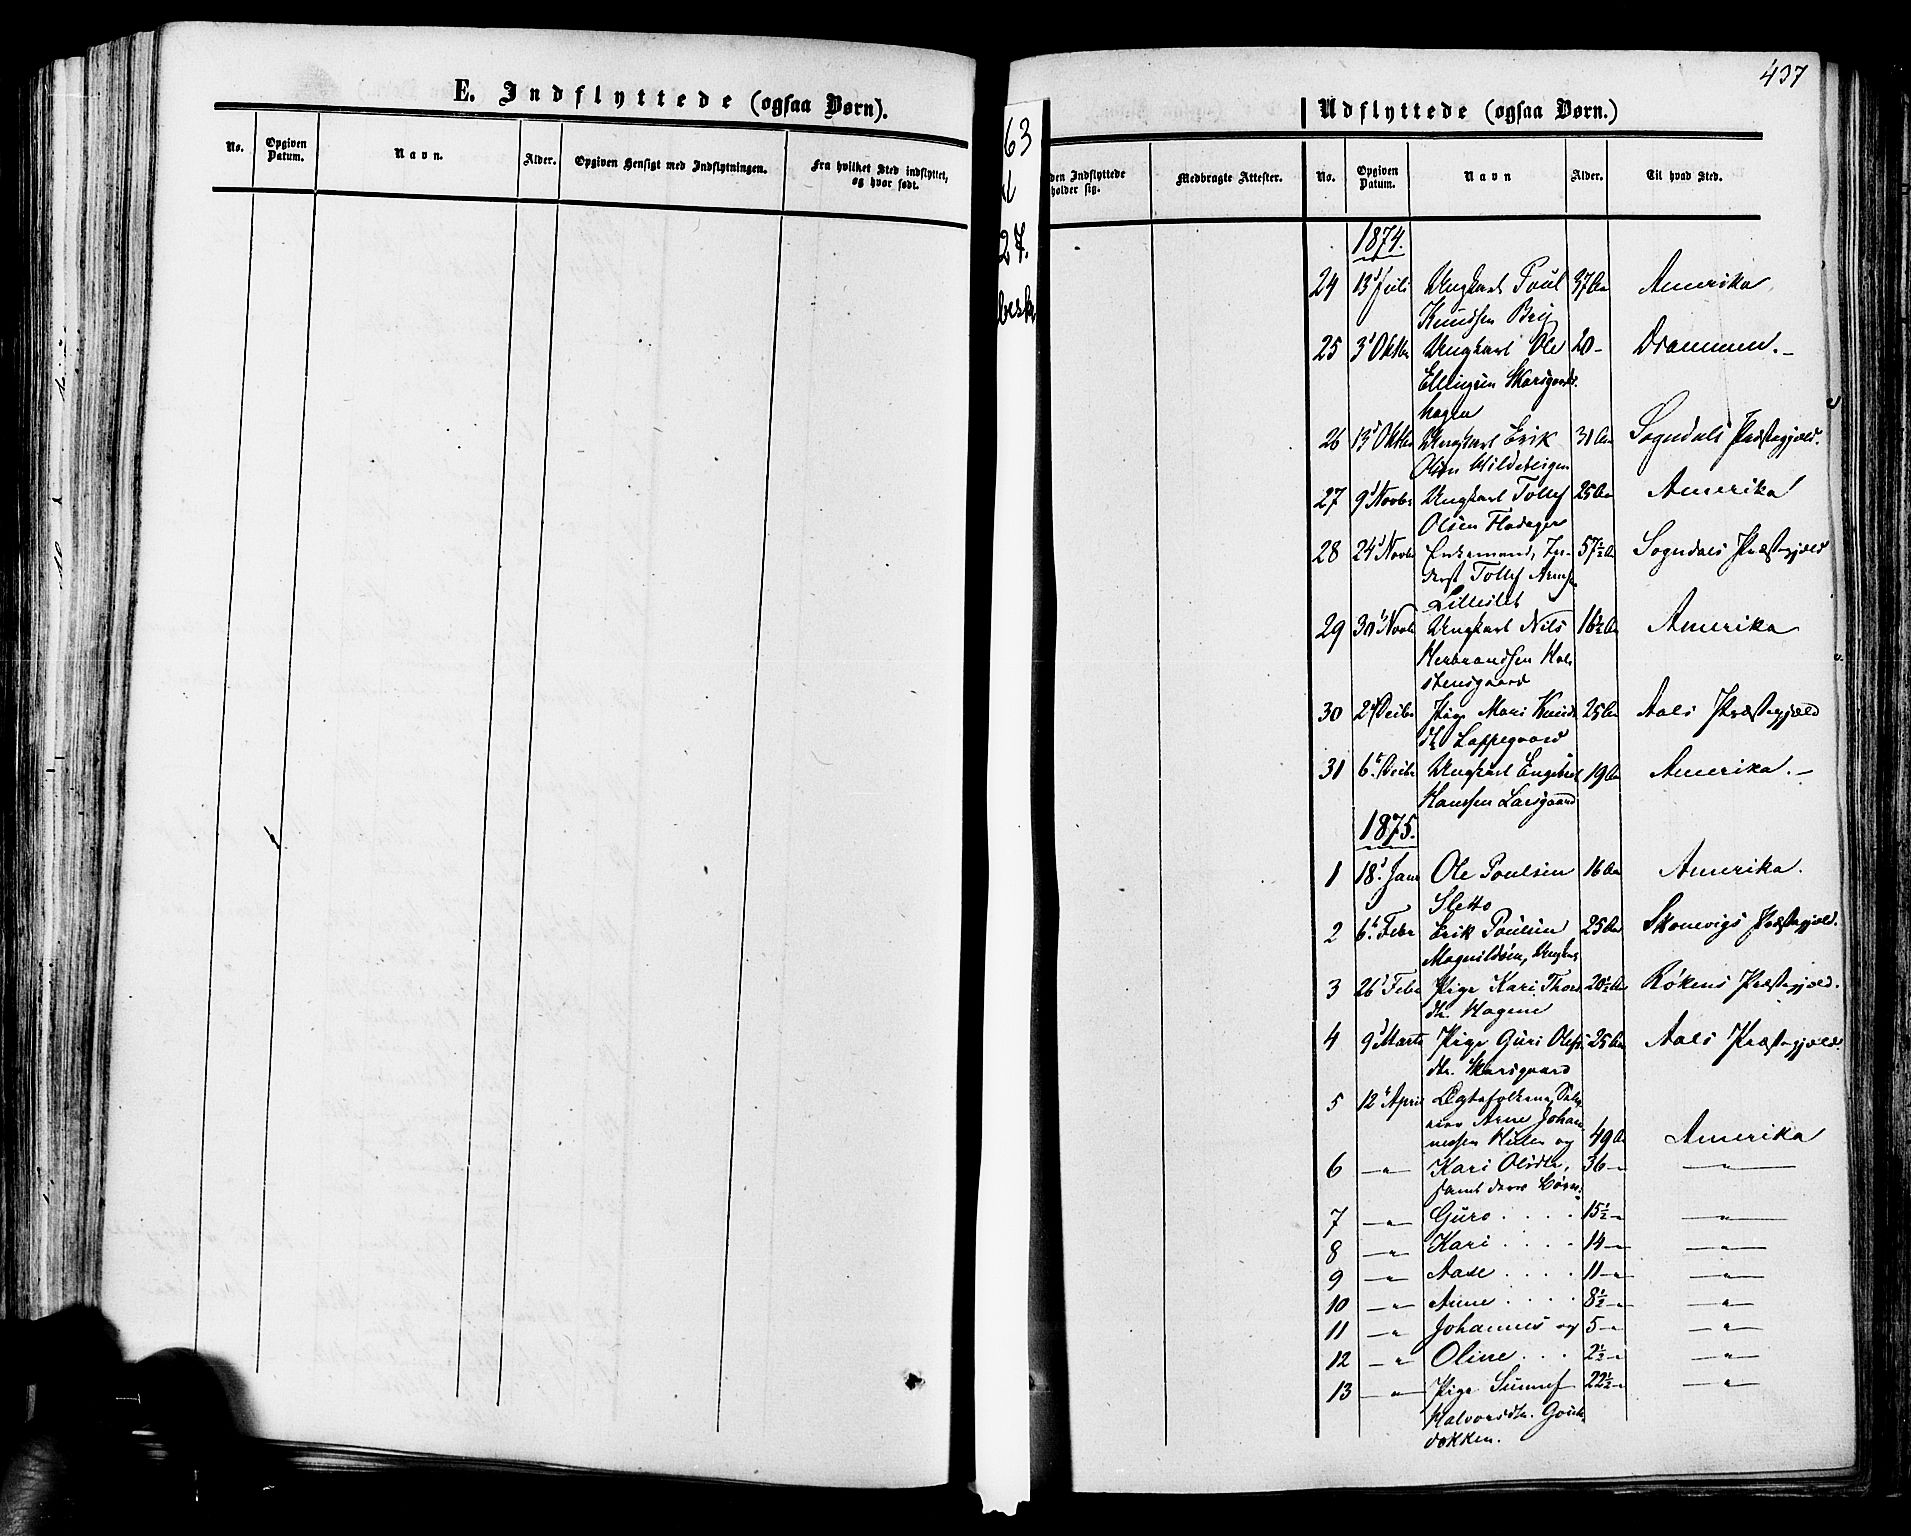 437
E. Indflyttede (ogsaa Børn).
No.
Opgiven Datum.
Navn.
Alder.
Opgiven Hensigt med Indflytningen.
Fra hvilket Sted indflyttet, og hvor født.
63
27.
besk
den Indflyttede
holder sig.
Medbragte Attester.
Udflyttede (ogsaa Børn.)
No.
Opgiven Datum.
Navn
Alder.
Til hvad Sted.
1874.
24 13d Juli Ungkarl Poul 37 Aar Amerika
Knudsen
25 3d Oktbr Ungkarl Ole 20 - Drammen. -
Ellingsen Skarsgaards
hagen
26 13d Oktbr Ungkarl Erik 31 Aar Sogndals Præstegjeld.
Olsen
27 9d Novbr Ungkarl Tollef 25 Aar Amerika
Olsen
28 24d Novbr Enkemand, In-
derst Tollef 57½ Aar Sogndals Præstegjeld
29 30d Novbr Ungkarl Nils 16½ Aar Amerika
Herbrandsen Hol-
stensgaard
30 Decbr Pige Mari Knuds 25 Aar Aals Præstegjeld
dtr Lappegaard
31 6te Decbr Ungkarl Engebret 19 Aar Amerika. -
Hanssen Larsgaard
1875.
1 18d Janr Ole Poulsen 16 Aar Amerika.
Sletto
2 6te Febr Erik Poulsen 25 Aar Skonevigs Præstegjeld.
3 26d Febr Pige Kari Thors 20½ Aar Røkens Præstegjeld.
dtr. Hagene
4 9d Marts Pige Guri Olefs 25 Aar Aals Præstegjeld.
dtr. Skarsgaard
5 12te April Ægtefolkene
Arne Johan-
nessen og 49 Aar Amerika
6 -"- Kari Olsdtr, 36 -" -"-
samt deres Børn:
7 -"- Guro . . . . 15½ -" -"-
8 -"- Kari . . . . 14 -" -"-
9 -"- Aase . . . . 11 -" -"-
10 -"- Arne . . . . 8½ -" -"-
11 -"- Johannes og 5 -" -"-
12 -"- Oline . . . 2½ -" -"-
13 -"- Pige Sunnef 22½ -" -"-
Halvorsdtr.
dokken.